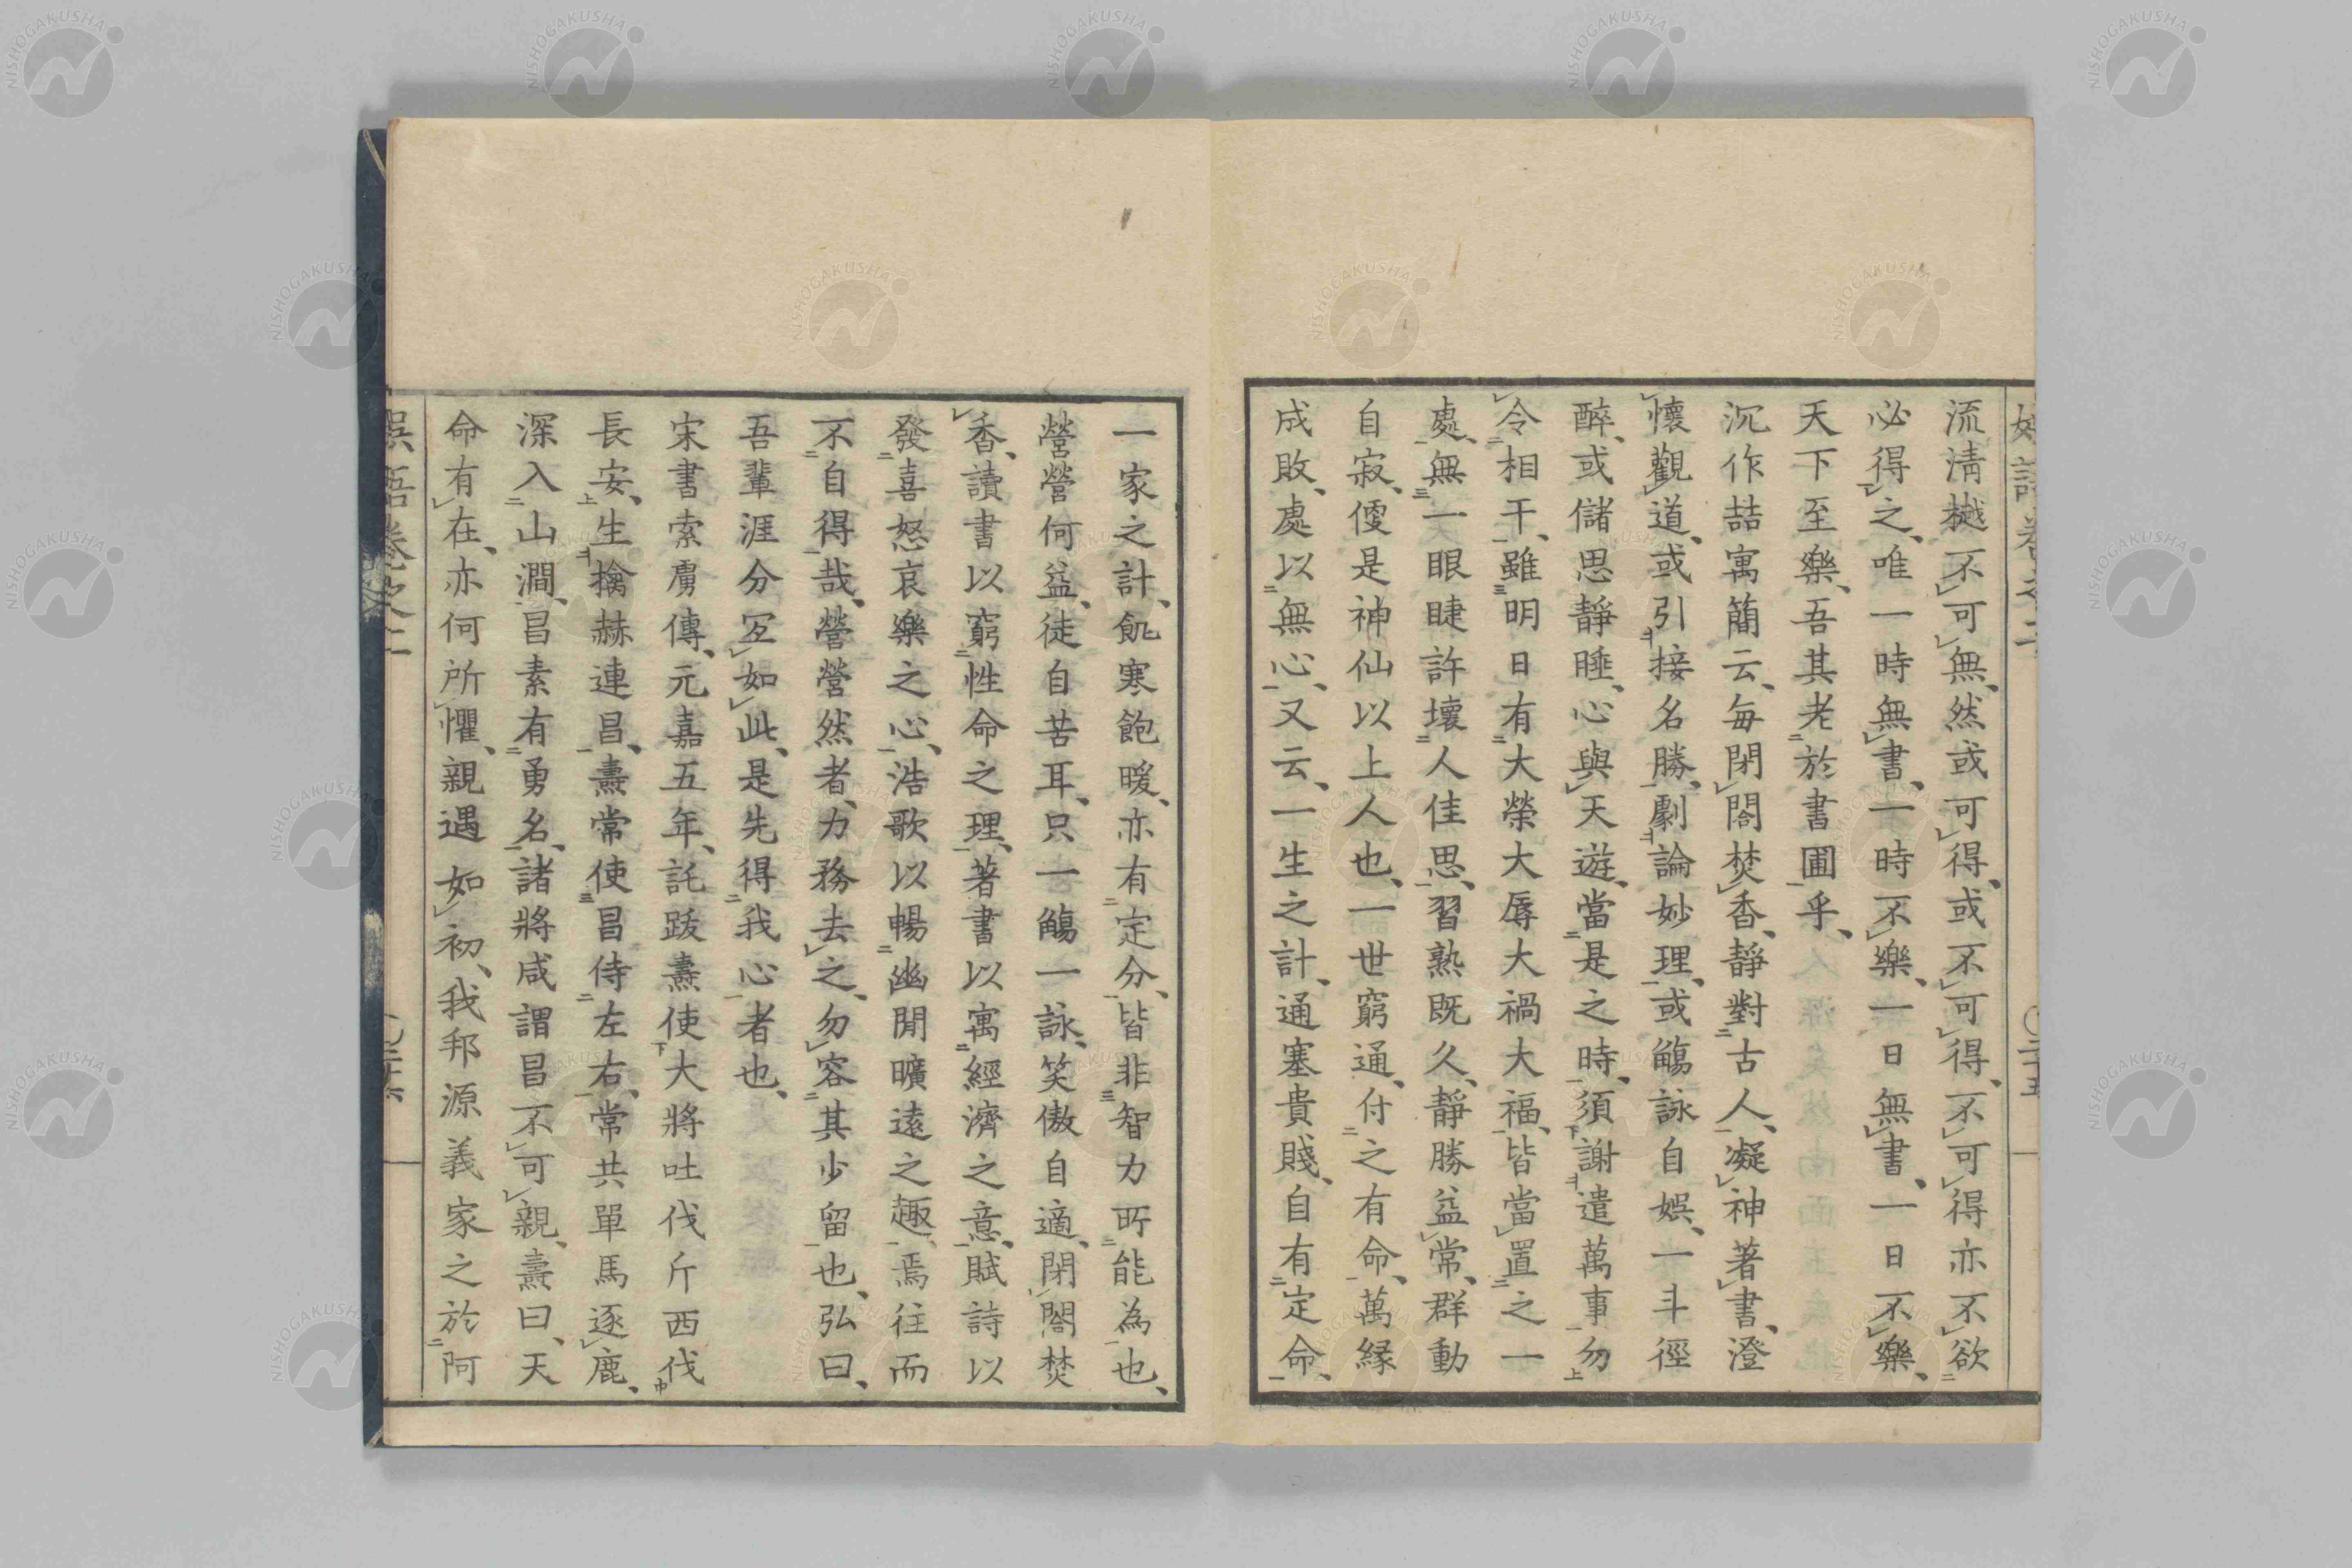 流淸樾不可無、然或可得、或不可得、不可得亦不欲
必得之、唯一時無書、一時不樂、一日無書、一日不樂、
天下至樂、吾其老於書圃乎、
沉作喆寓簡云、每閉閤焚香、靜對古人、凝神著書、澄
懷觀道、或引接名勝、劇論妙理、或觴詠自娛、一斗徑
醉、或儲思靜睡、心與天遊、當是之時、須謝遣萬事勿
令相干、雖明日有大榮大辱大禍大福、皆當置之一
處、無一眼睫許壞人佳思、習熟既久、靜勝益常、群動
自寂、便是神仙以上人也、一世窮通、付之有命、萬緣
成敗、處以無心、又云、一生之計、通塞貴賤、自有定命、
一家之計、飢寒飽暖、亦有定分、皆非智力所能為也、
營營何益、徒自苦耳、只一觴一詠、笑傲自適、閉閤焚
香、讀書以窮性命之理、著書以寓經濟之意、賦詩以
發喜怒哀樂之心、浩歌以暢幽閒曠遠之趣、焉往而
不自得哉、營營然者、力務去之、勿容其少留也、弘曰、
吾輩涯分冝如此、是先得我心者也、
宋書索虜傳、元嘉五年、託跋燾使大將吐伐斤西伐
長安、生擒赫連昌、燾常使昌侍左右、常共單馬逐鹿、
深入山澗、昌素有勇名、諸將咸謂昌不可親、燾曰、天
命有在、亦何所懼、親遇如初、我邦源義家之於阿
NISHOGAKUSHA